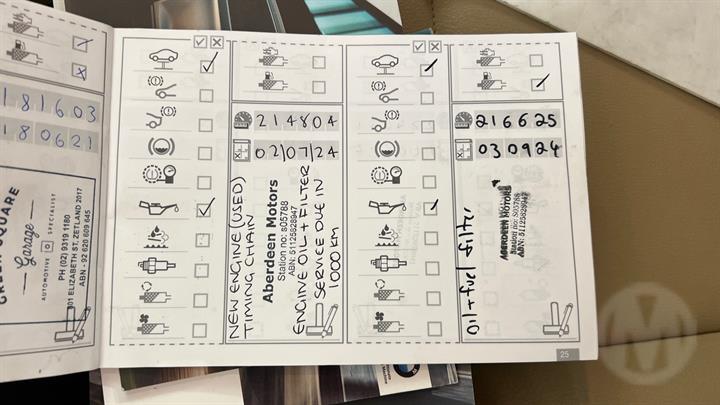 181603
180621
GREEN SQUARE
Garage
AUTOMOTIVE SPECIALIST
PH (02) 9319 1180
101 ELIZABETH ST, ZETLAND 2017
ABN: 92 620 609 645
214804
02/07/24
NEW ENGINE (USED)
TIMING CHAIN
Aberdeen Motors
Station no: s05788
ABN: 51125828947
ENGINE OIL + FILTER
SERVICE DUE IN
1000 KM
216625
030924
ABERDEEN MOTORS
Station no: S05788
ABN: 51125828947
oil + fuel filter
25
M